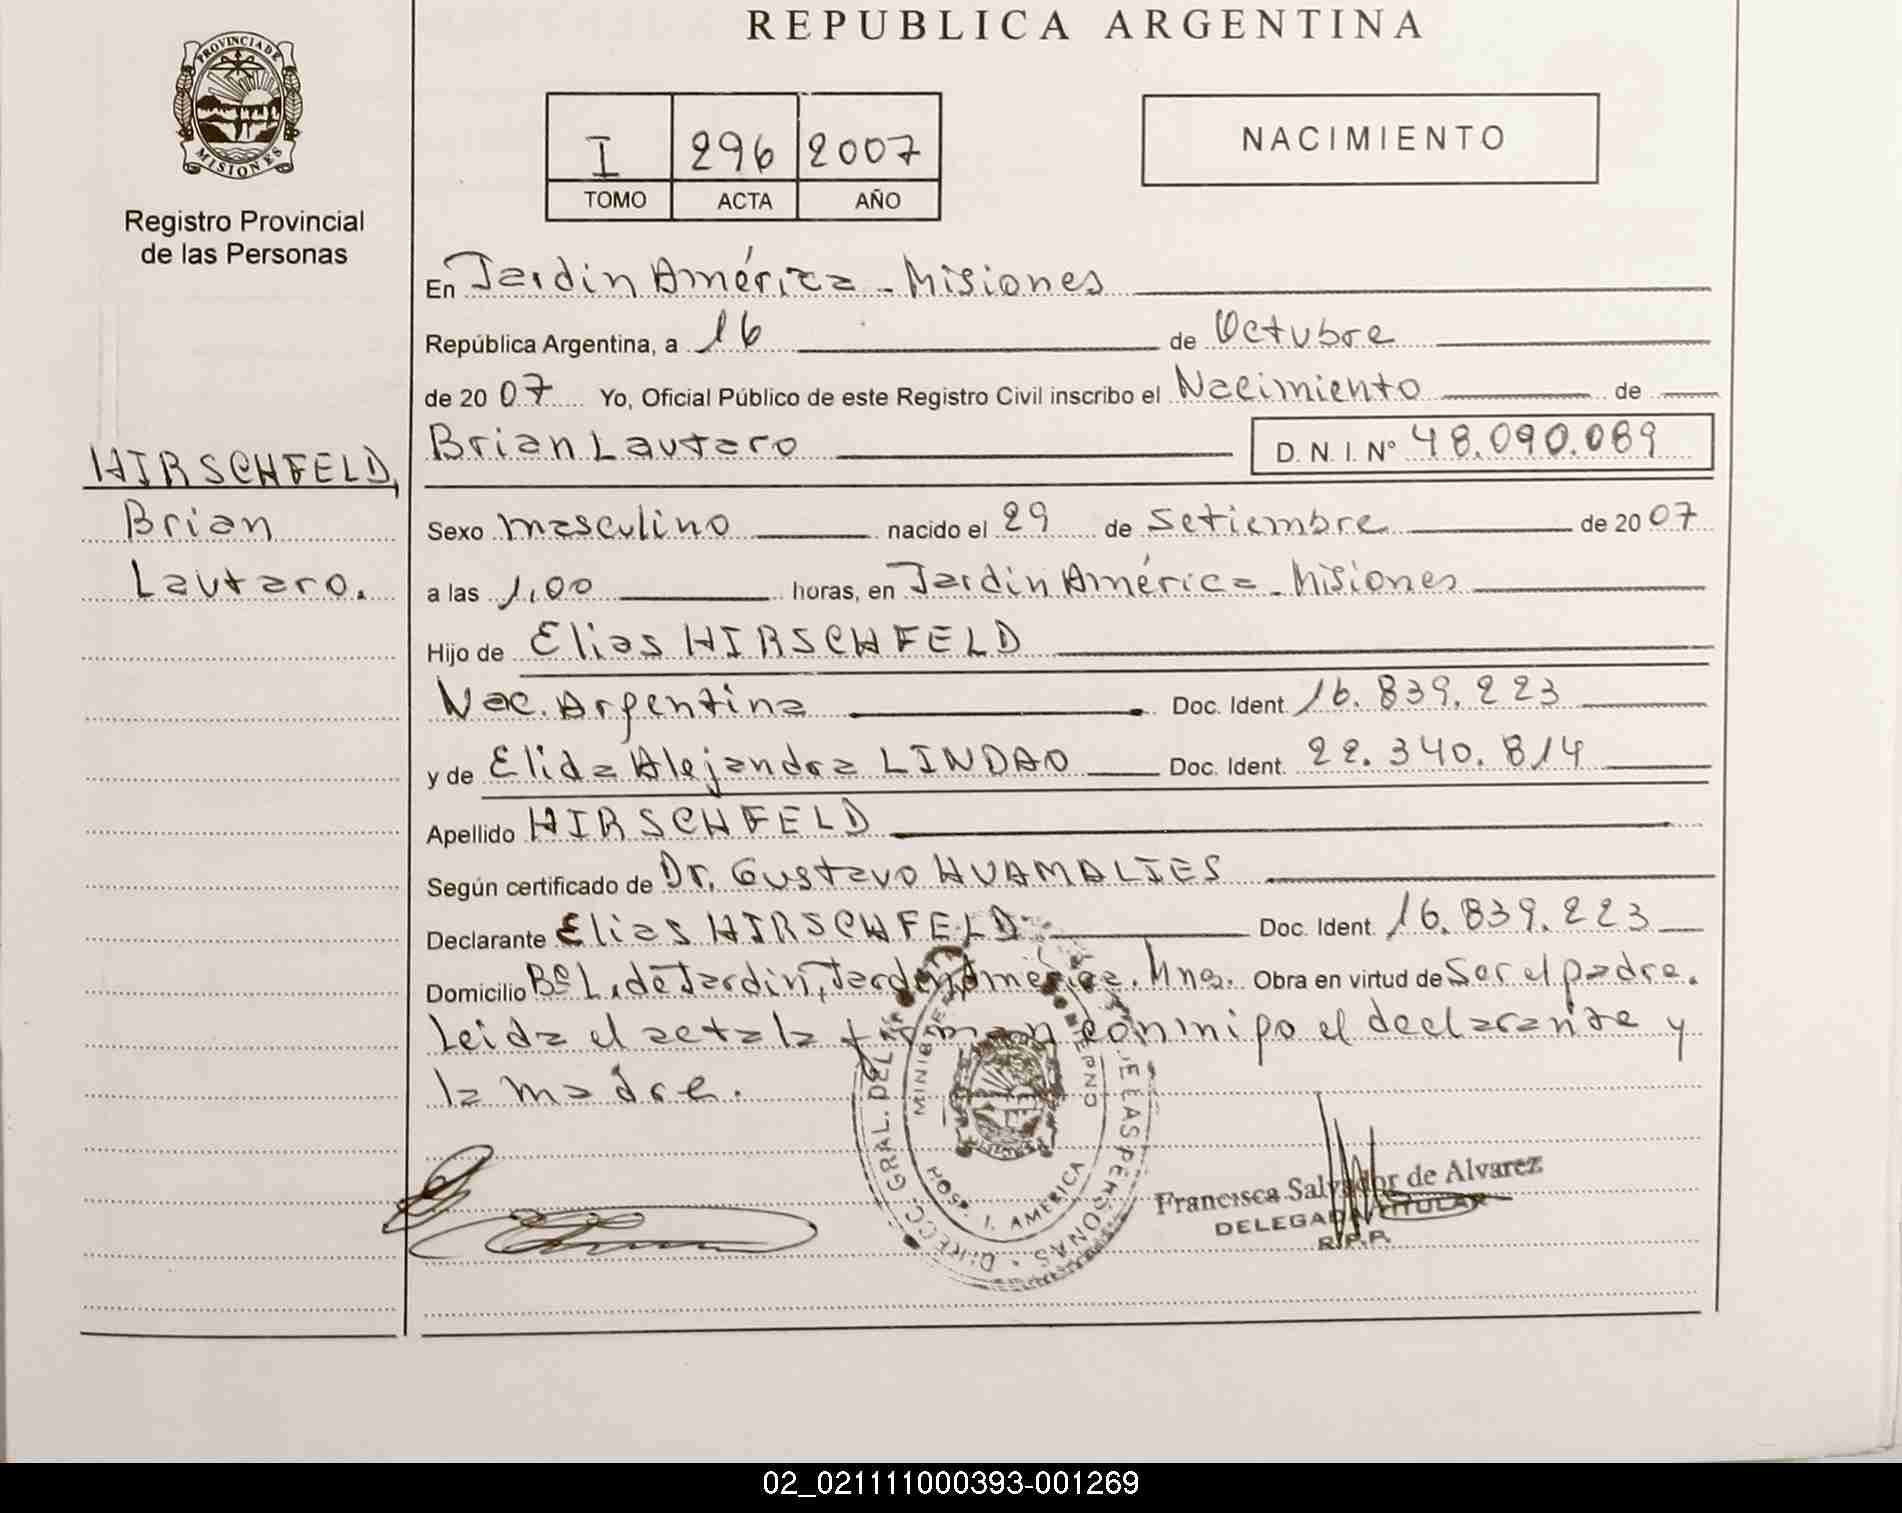 REPUBLICA ARGENTINA
PROVINCIA DE
MISIONES
Registro Provincial
de las Personas
I 296 2007
TOMO ACTA AÑO
NACIMIENTO
En Jardin América - Misiones
República Argentina, a 16 de Octubre
de 20 07 Yo, Oficial Público de este Registro Civil inscribo el Nacimiento de
Brian Lautaro D. N. I. Nº 48.090.089
HIRSCHFELD,
Brian
Lautaro.
Sexo masculino nacido el 29 de Setiembre de 20 07
a las 1,00 horas, en Jardin América - Misiones
Hijo de Elias HIRSCHFELD
Nac. Argentina Doc. Ident. 16.839.223
y de Elida Alejandra LINDAO Doc. Ident. 22.340.814
Apellido HIRSCHFELD
Según certificado de Dr. Gustavo HUAMALIES
Declarante Elias HIRSCHFELD Doc. Ident. 16.839.223
Domicilio Bº L. de Jardin, Jardin América. Mnes. Obra en virtud de Ser el padre.
Leida el acta la firman conmigo el declarante y
la madre.
DIRECC. GRAL. DEL
DE LAS PERSONAS
HOSP. J. AMERICA
Francisca Salvador de Alvarez
DELEGADA TITULAR
R.P.P.
02_021111000393-001269